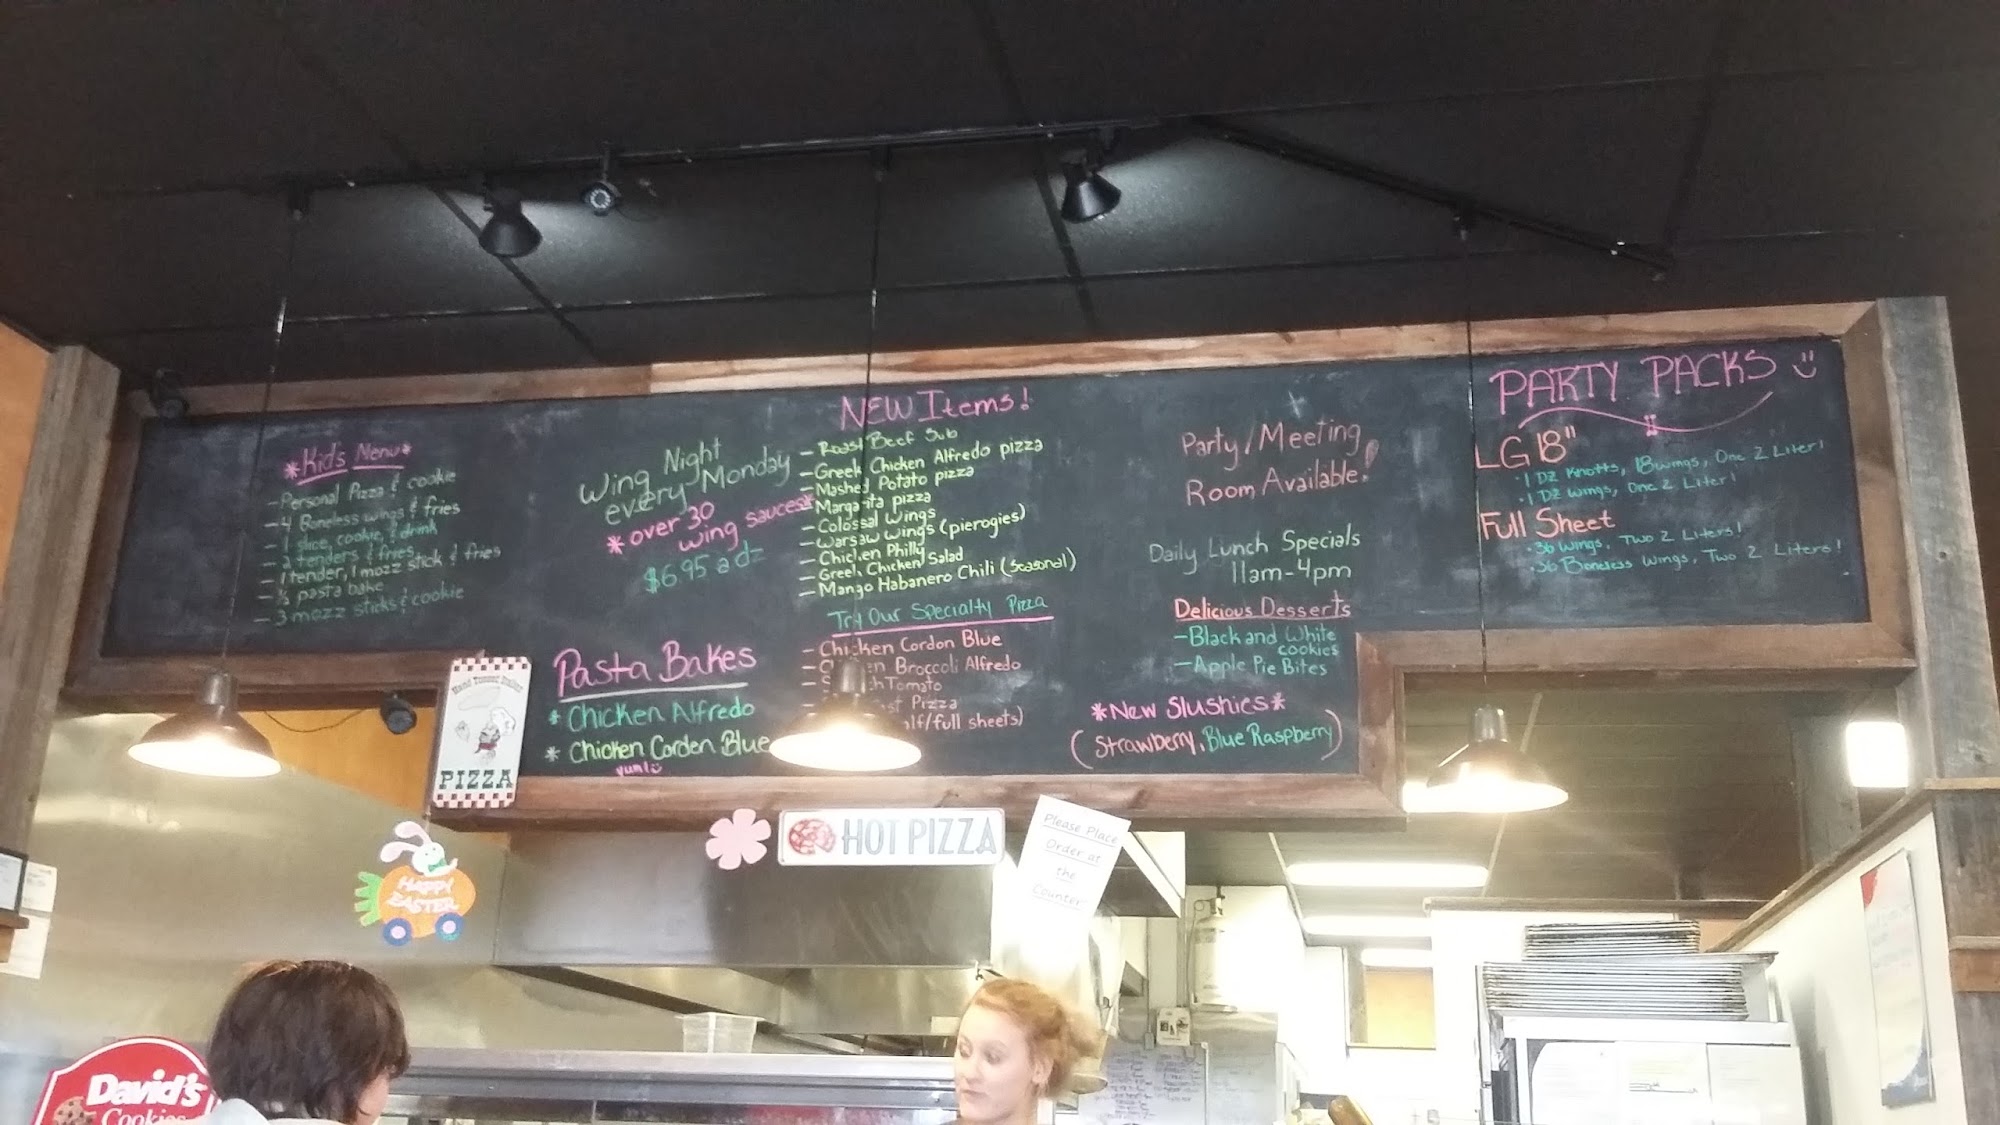 *Kid's Menu*
- Personal Pizza & cookie
- 4 Boneless wings & fries
- 1 slice, cookie, & drink
- 2 tenders & fries
- 1 tender, 1 mozz stick & fries
- ½ pasta bake
- 3 mozz sticks & cookie
Wing Night
every Monday
* over 30
wing sauces*
$6.95 a dz
Pasta Bakes
* Chicken Alfredo
* Chicken Corden Blue
yum!
NEW Items!
- Roast Beef Sub
- Greek Chicken Alfredo pizza
- Mashed Potato pizza
- Margarita pizza
- Colossal Wings
- Warsaw Wings (pierogies)
- Chicken Philly
- Greek Chicken Salad
- Mango Habanero Chili (seasonal)
Try Our Specialty Pizza
- Chicken Cordon Blue
Broccoli Alfredo
Tomato
Pizza
/full sheets)
Party/Meeting
Room Available!
Daily Lunch Specials
11am-4pm
Delicious Desserts
- Black and White
cookies
- Apple Pie Bites
*New Slushies*
(Strawberry, Blue Raspberry)
PARTY PACKS
LG 18"
· 1 DZ Knotts, 18 wings, One 2 Liter!
· 1 DZ wings, One 2 Liter!
Full Sheet
· 36 Wings, Two 2 Liters!
· 36 Boneless Wings, Two 2 Liters!
Hand Tossed Italian
PIZZA
HOT PIZZA
Please Place
Order at
the
Counter
HAPPY
EASTER
David's
Cookies